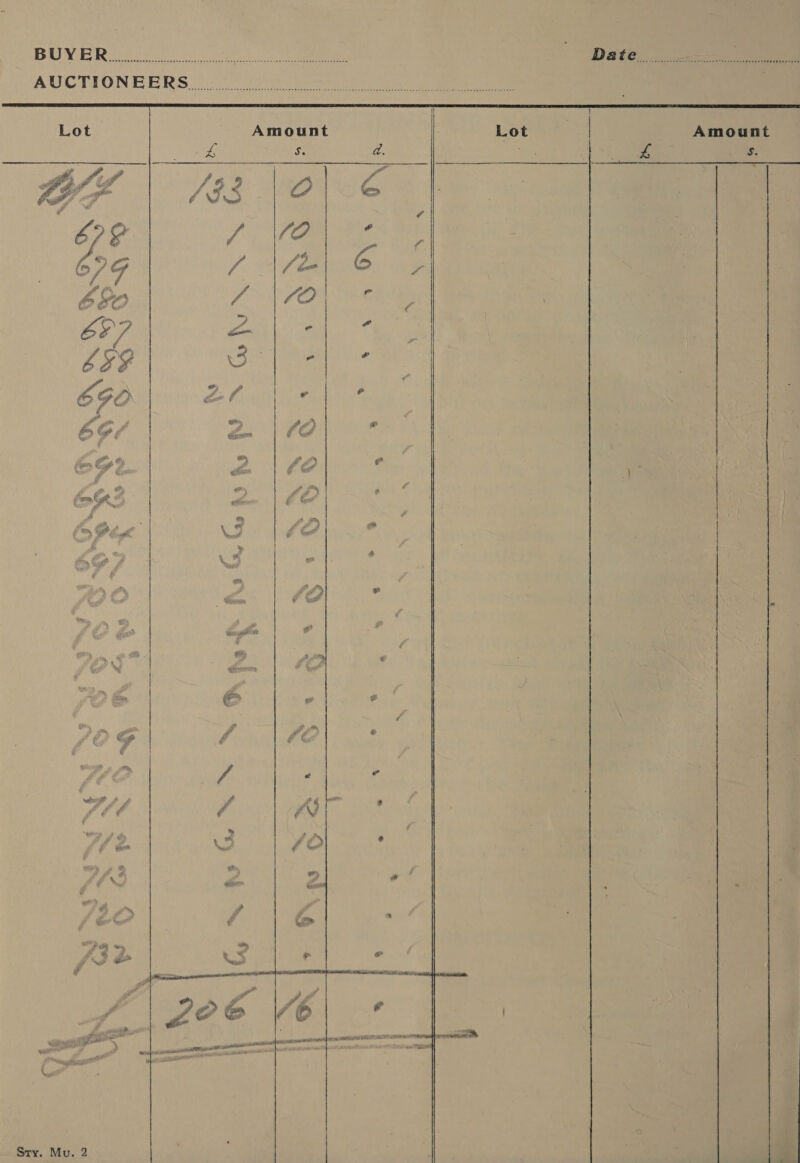 BUYER Date
AUCTIONEERS
Lot Amount Lot Amount
£ s. d. £ s.
B/F 133 0 6
678 1 10 -
679 1 12 6
680 1 10 -
687 2 - -
688 3 - -
690 21 - -
691 2 10 -
692 2 10 -
693 2 10 -
694 3 10 -
697 3 - -
700 2 10 -
702 4 - -
705 2 10 -
706 6 - -
709 1 10 -
710 1 - -
711 1 15 -
712 3 10 -
713 2 2 -
720 1 6 -
732 3 - -
£ 206 16 -
Sry. Mu. 2